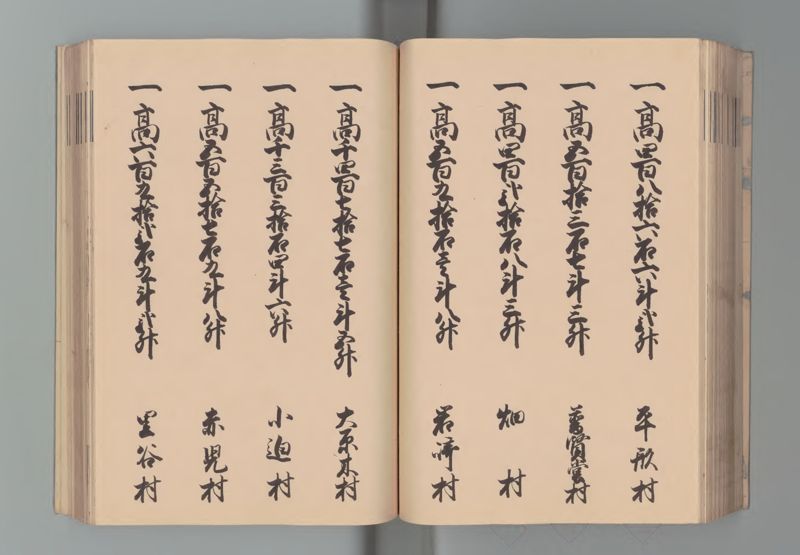 一高四百八拾六石六斗弐升 平形村
一高五百拾三石七斗三升 菩賢堂村
一高四百弐拾石八斗三升 畑村
一高五百九拾石壱斗八升 岩崎村
一高千四百七拾七石壱斗五升 大原木村
一高千三百三拾石四斗六升 小迫村
一高五百五拾七石九斗八升 赤児村
一高六百九拾弐石五斗弐升 里谷村